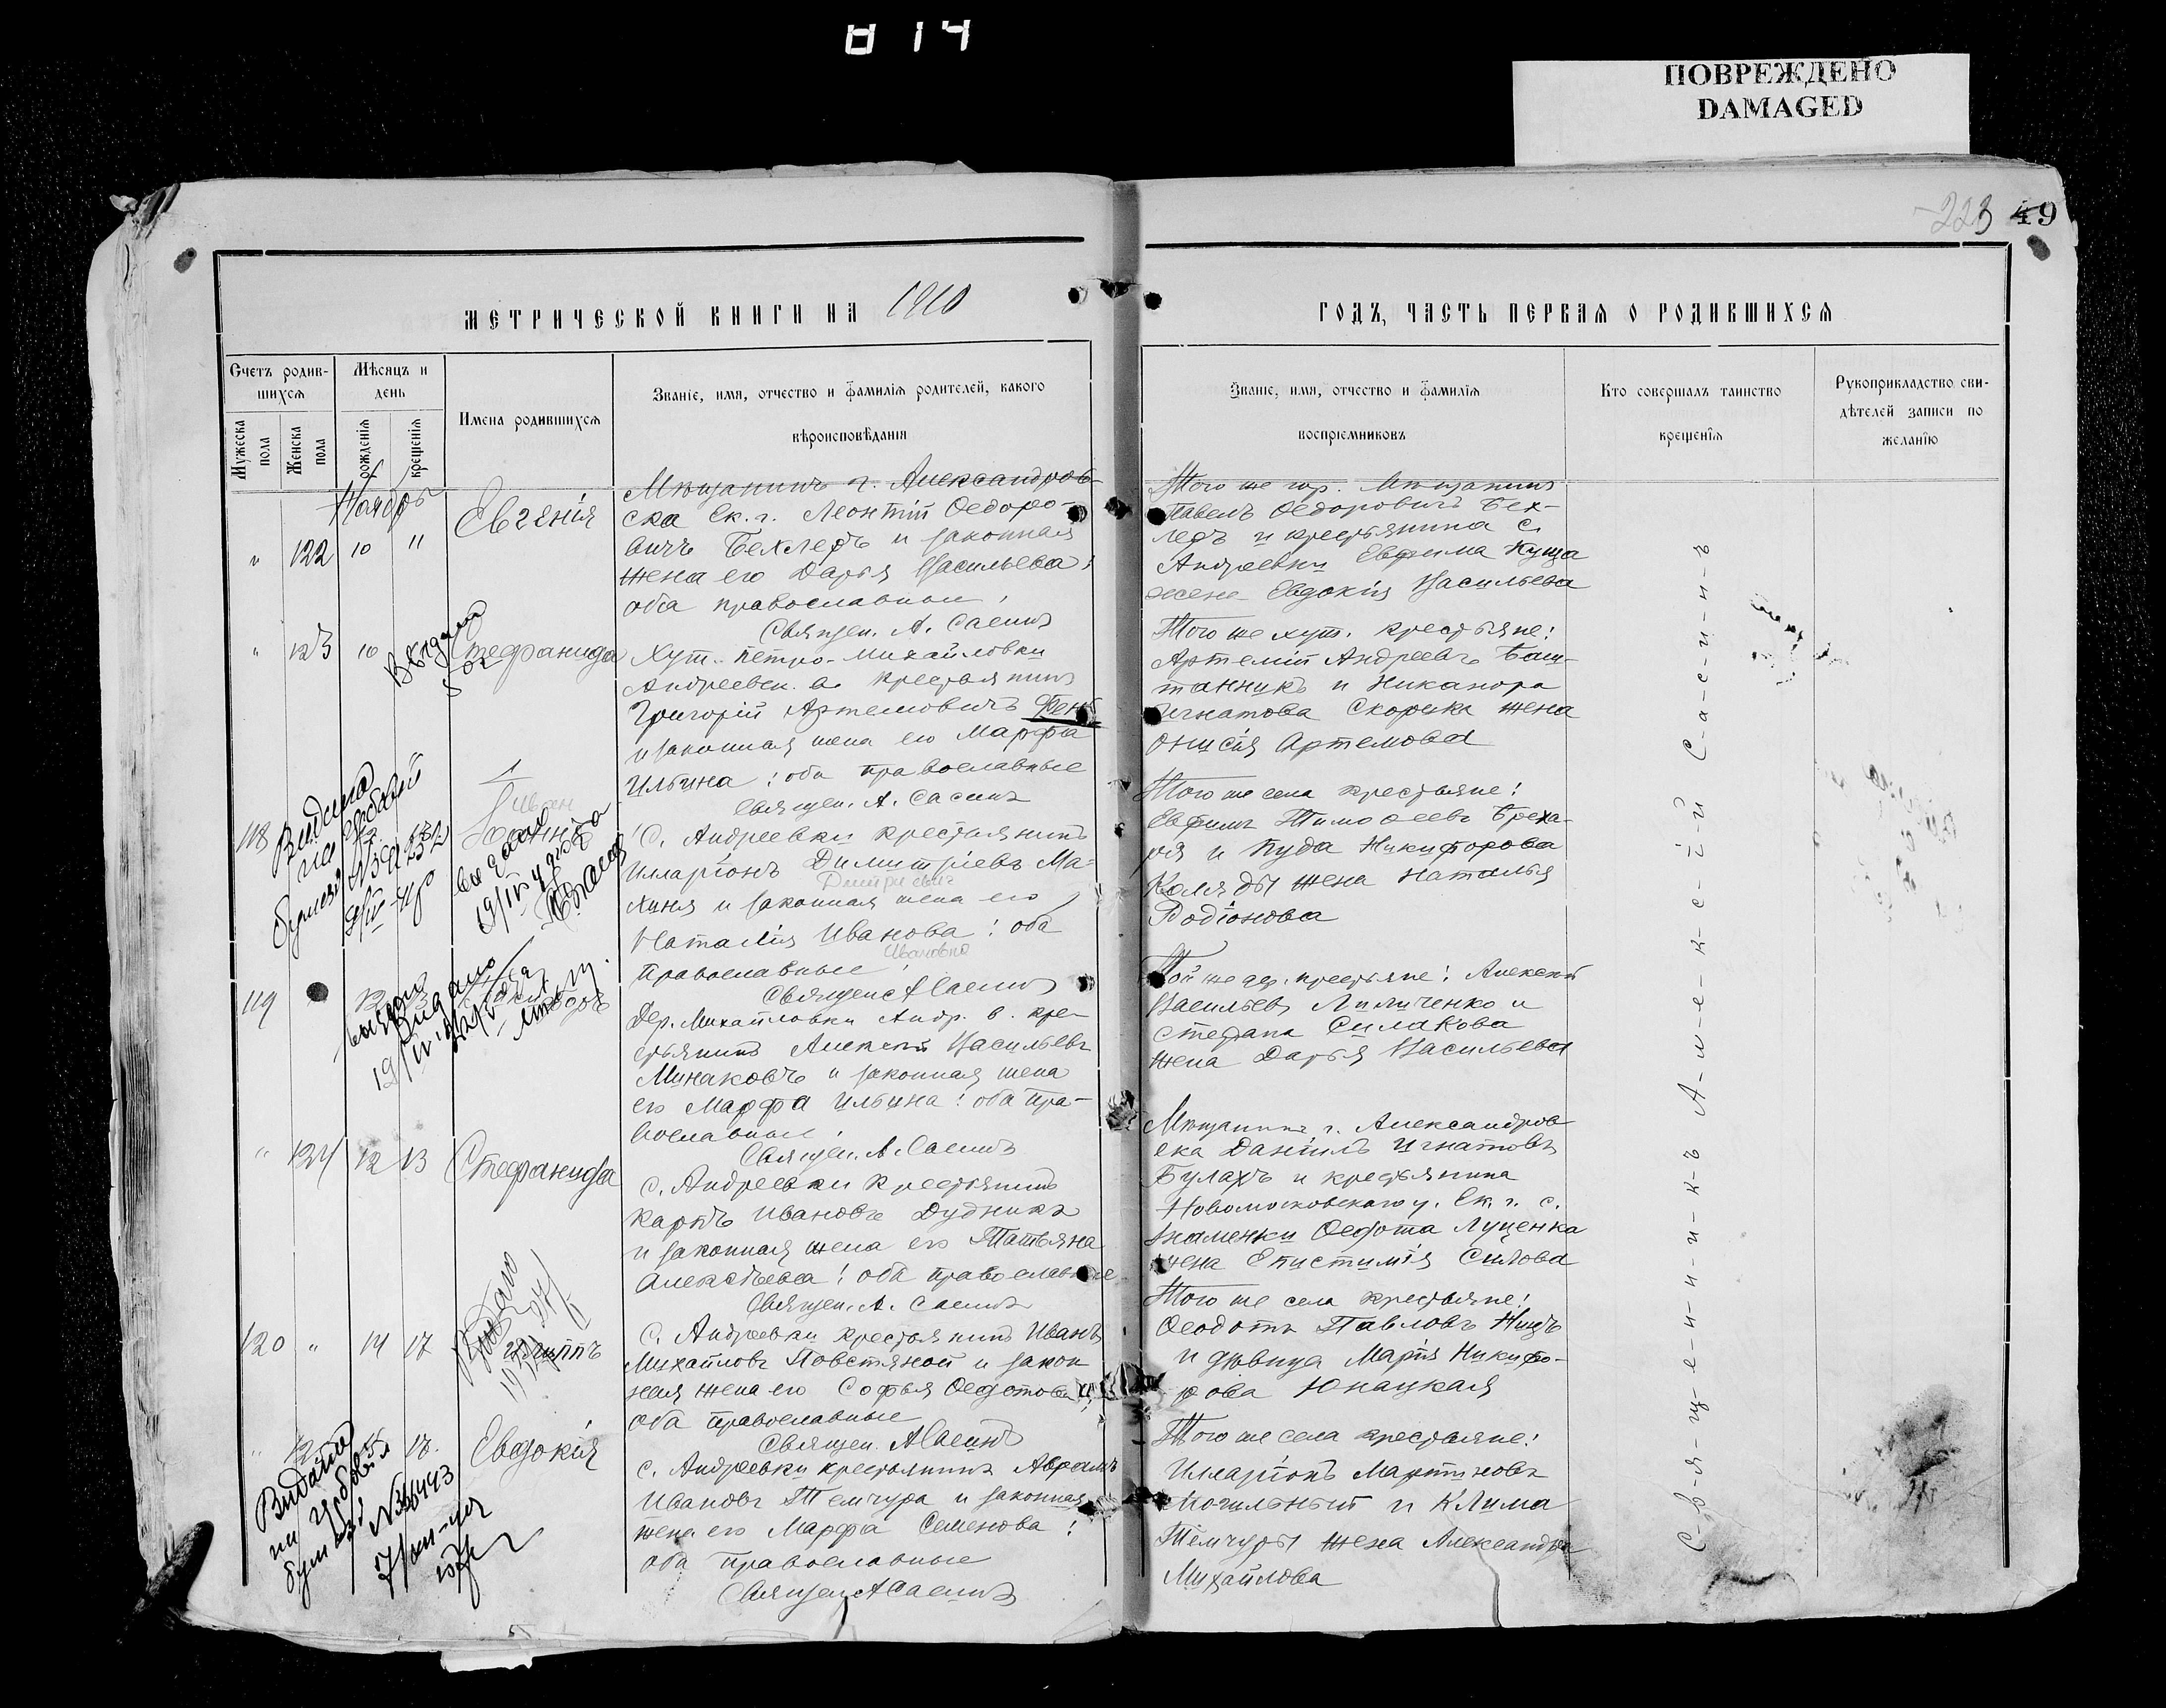 ПОВРЕЖДЕНО
DAMAGED
223 49
МЕТРИЧЕСКОЙ КНИГИ НА 1910
ГОДЪ, ЧАСТЬ ПЕРВАЯ О РОДИВШИХСЯ
Счетъ родив-
шихся
Мужеска пола
Женска пола
Мѣсяцъ и
день
рожденія
крещенія
Имена родившихся
Званіе, имя, отчество и фамилія родителей, какого
вѣроисповѣданія
Званіе, имя, отчество и фамилія
воспріемниковъ
Кто совершалъ таинство
крещенія
Рукоприкладство сви-
дѣтелей записи по
желанію
Ноябрь
" 122 10 11 Евгенія
Мѣщанинъ г. Александров-
ска Ек. г. Леонтій Ѳеодоро-
вичъ Бехледъ и законная
жена его Дарья Васильева;
оба православные
Священ. А. Сасинъ
Того же гор. Мѣщанинъ
Павелъ Ѳедоровичъ Бех-
ледъ и крестьянина с.
Андреевки Евфима Куща
жена Евдокія Васильева
" 123 10 Стефанида
Хут. Петро-Михайловки
Андреевск. в. крестьянинъ
Григорій Артемовичъ
и законная жена его Марфа
Ильина; оба православные
Священ. А. Сасинъ
Того же хут. крестьяне:
Артемій Андреевъ Баш-
танникъ и Никанора
Игнатова Скорика жена
Онисія Артемова
118 Іоаннъ
Иван
С. Андреевки крестьянинъ
Илларіонъ Димитріевъ Ма-
хиня и законная жена его
Наталія Иванова; оба
Ивановна
православные
Священ А Сасинъ
Того же села крестьяне:
Евфимъ Тимоѳеевъ Бреха-
ря и Іуда Никифорова
Коляды жена Наталья
Родіонова
119 12
Дер. Михайловки Андр. в. кре-
стьянинъ Алексѣй Васильевъ
Минаковъ и законная жена
его Марфа Ильина; оба пра-
вославные
Священ. А. Сасинъ
Той же дер. крестьяне: Алексѣй
Васильевъ Лимиченко и
Стефана Силакова
жена Дарья Васильева
" 124 12 13 Стефанида
С. Андреевки крестьянинъ
Карпъ Ивановъ Дудникъ
и законная жена его Татьяна
Алексѣева; оба православные
Священ. А. Сасинъ
Мѣщанинъ г. Александров-
ска Даніилъ Игнатовъ
Булахъ и крестьянина
Новомосковскаго у. Ек. г. с.
Знаменки Ѳедота Луценка
жена Епистимія Силова
120 " 14 17 Филиппъ
С. Андреевки крестьянинъ Иванъ
Михайловъ Повстяной и закон
ная жена его Софья Ѳедотова;
оба православные
Священ. А Сасинъ
Того же села крестьяне:
Ѳеодотъ Павловъ Нищъ
и дѣвица Марія Никифо-
рова Юнацкая
Евдокія
С. Андреевки крестьянинъ Аврамъ
Ивановъ Темчура и законная
жена его Марфа Семенова;
оба православные
Священ А Сасинъ
Того же села крестьяне:
Илларіонъ Мартиновъ
Могильный и Клима
Темчуры жена Александра
Михайлова
С-в-я-щ-е-н-н-и-к-ъ А-л-е-к-с-ѣ-й С-а-с-и-н-ъ